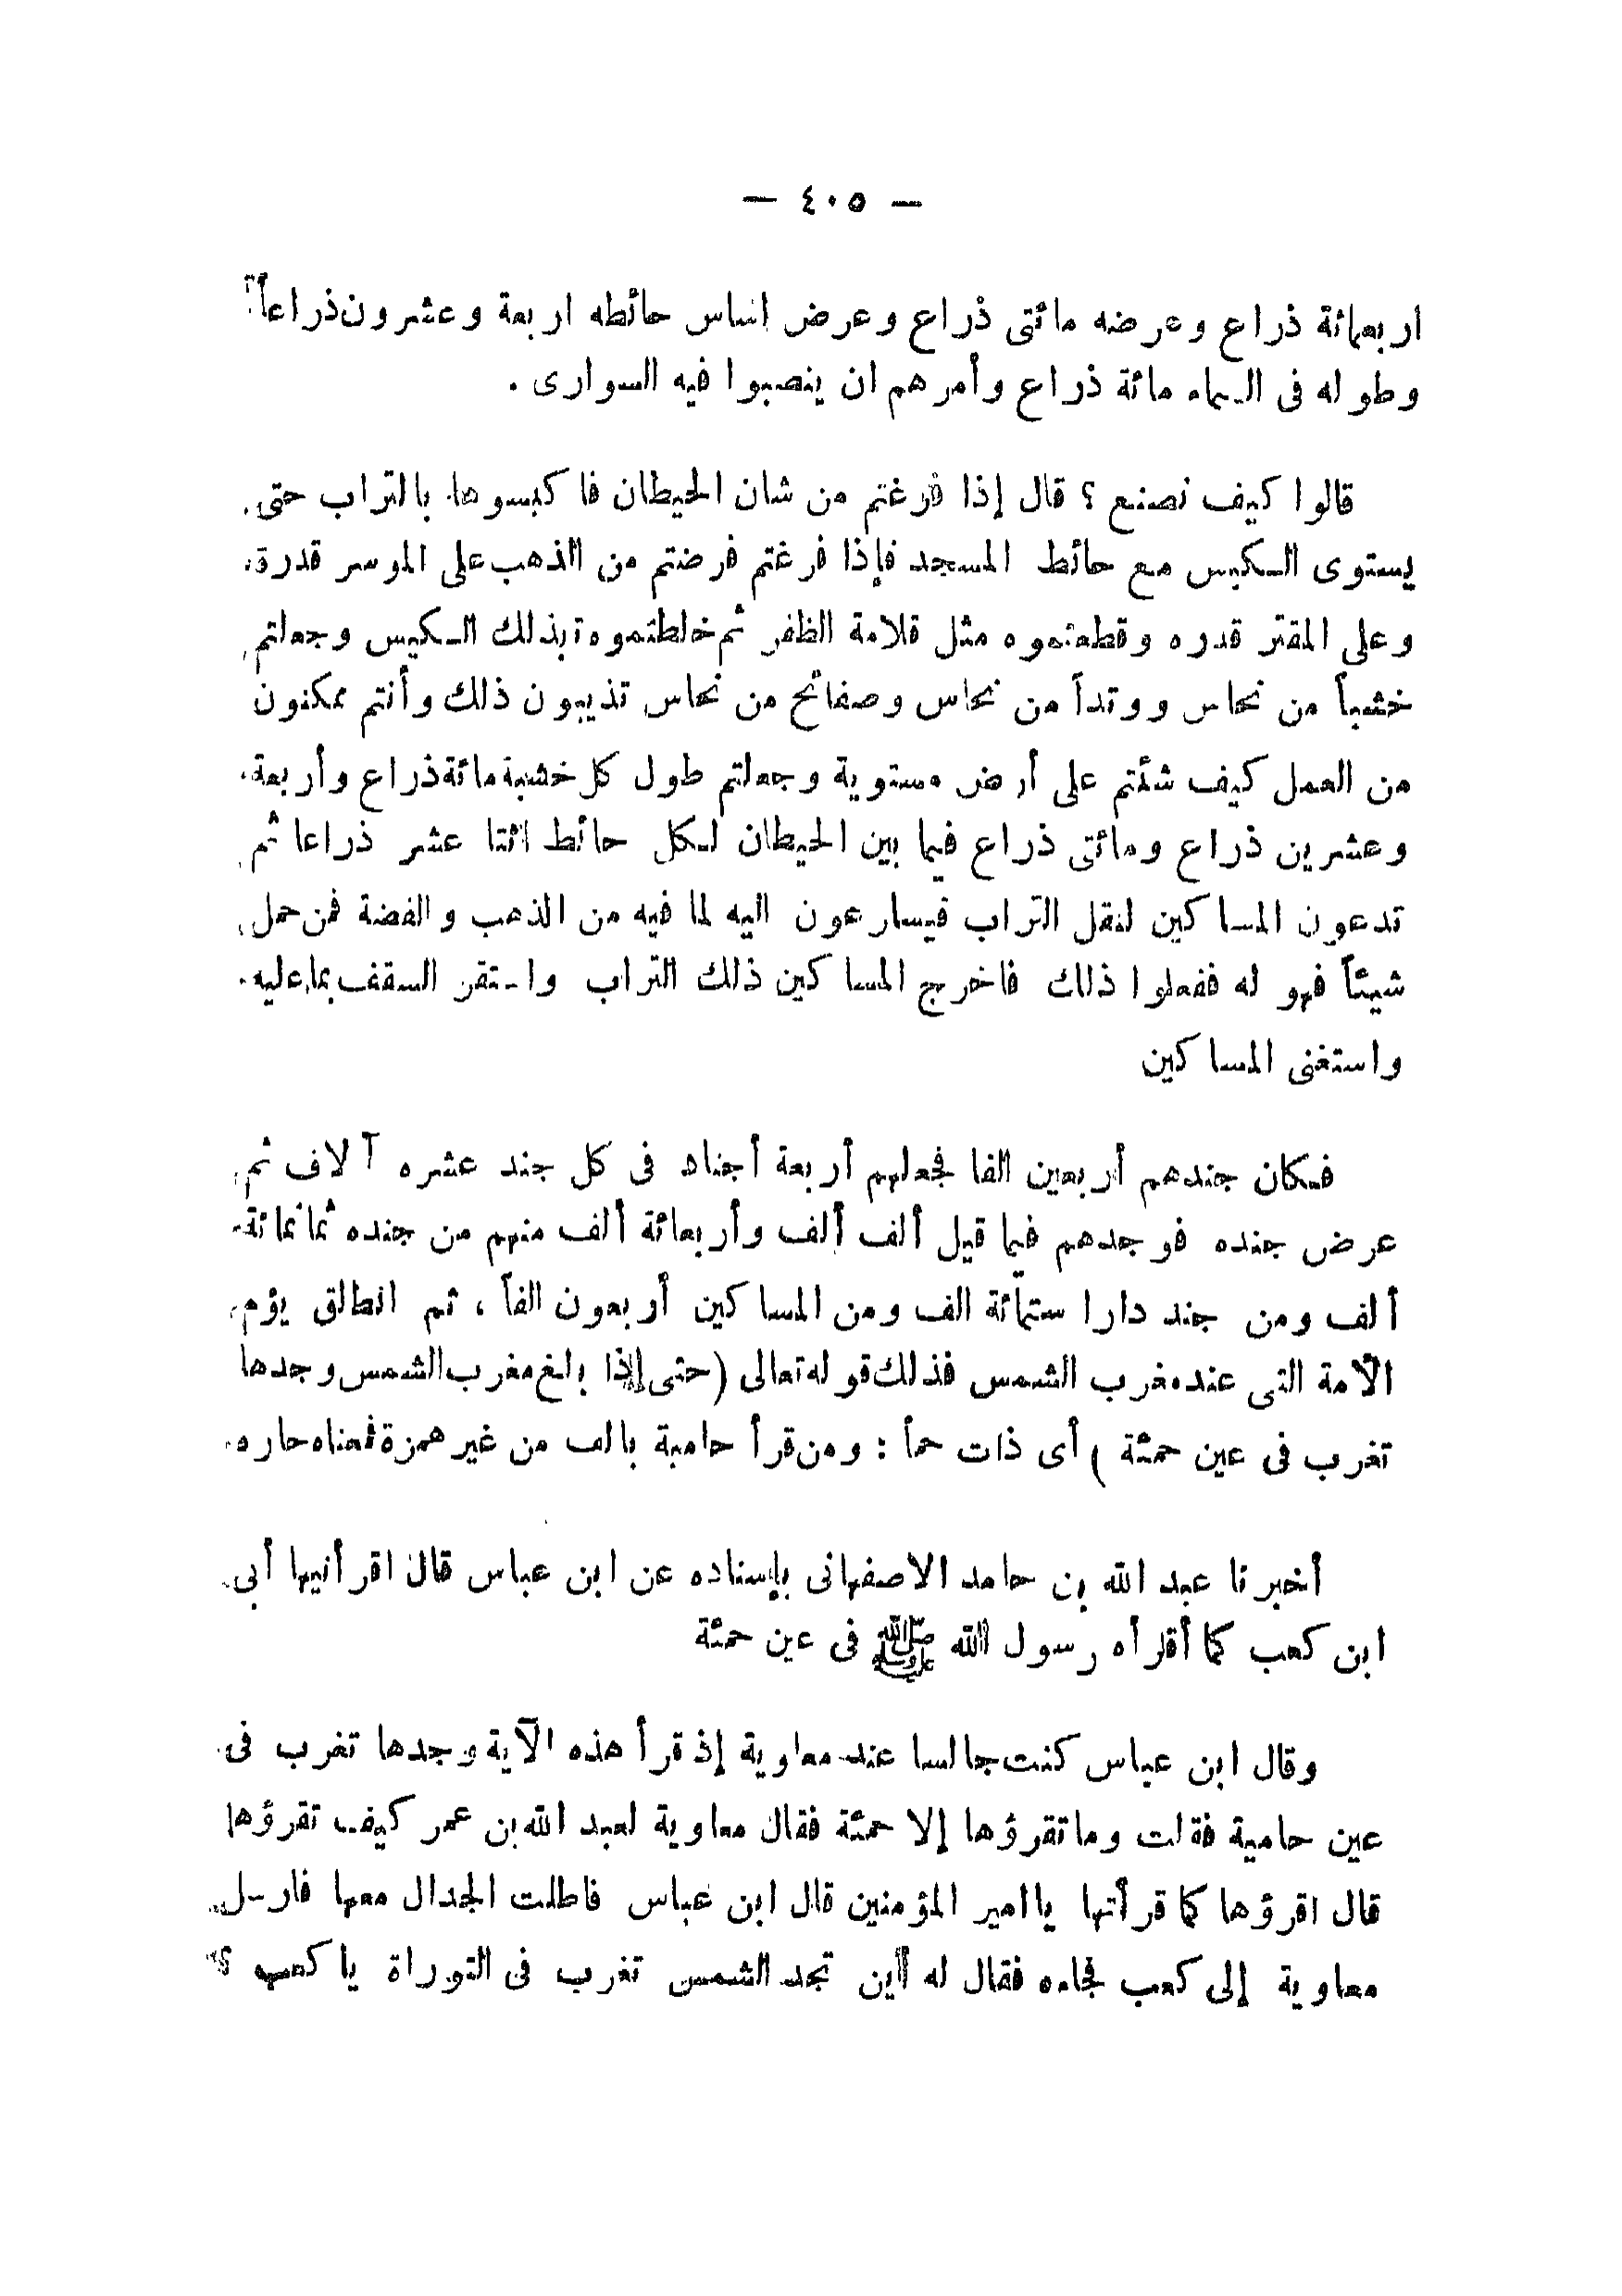 — ٤٠٥ —
اربعمائة ذراع وعرضه مائتى ذراع وعرض اساس حائطه اربعة وعشرون ذراعاً
وطوله فى السماء مائة ذراع وأمرهم ان ينصبوا فيه السوارى .
قالوا كيف نصنع ؟ قال إذا فرغتم من شان الحيطان فاكبسوها بالتراب حتى
يستوى الكبس مع حائط المسجد فإذا فرغتم فرضتم من الذهب على الموسر قدره
وعلى المقتر قدره وقطعتموه مثل قلامة الظفر ثم خلطتموه بذلك الكبس وجعلتم
خشباً من نحاس ووتداً من نحاس وصفائح من نحاس تذيبون ذلك وأنتم ممكنون
من العمل كيف شئتم على أرض مستوية وجعلتم طول كل خشبة مائة ذراع وأربعة
وعشرين ذراع ومائتى ذراع فيما بين الحيطان لكل حائط اثنا عشر ذراعا ثم
تدعون المساكين لنقل التراب فيسارعون اليه لما فيه من الذهب والفضة فمن حمل
شيئاً فهو له ففعلوا ذلك فاخرج المساكين ذلك التراب واستقر السقف بما عليه
واستغنى المساكين
فكان جندهم أربعين الفا فجعلهم أربعة أجناد فى كل جند عشره آلاف ثم
عرض جنده فوجدهم فيما قيل ألف ألف وأربعائة ألف منهم من جنده ثمانمائة
ألف ومن جند دارا ستمائة الف ومن المساكين أربعون الفاً ، ثم انطلق يؤم
الأمة التى عند مغرب الشمس فذلك قوله تعالى (حتى إذا بلغ مغرب الشمس وجدها
تغرب فى عين حمئة ) أى ذات حمأ : ومن قرأ حامية بالف من غير همزة فمعناه حاره
أخبرنا عبد الله بن حامد الاصفهانى بإسناده عن ابن عباس قال اقرأنيها أبى
ابن كعب كما أقرأه رسول الله ﷺ فى عين حمئة
وقال ابن عباس كنت جالسا عند معاوية إذ قرأ هذه الآية وجدها تغرب فى
عين حامية فقلت وما تقرؤها إلا حمئة فقال معاوية لعبد الله بن عمر كيف تقرؤها
قال اقرؤها كما قرأتها ياامير المؤمنين قال ابن عباس فاطلت الجدال معها فارسل
معاوية إلى كعب فجاءه فقال له أين تجد الشمس تغرب فى التوراة يا كعب ؟